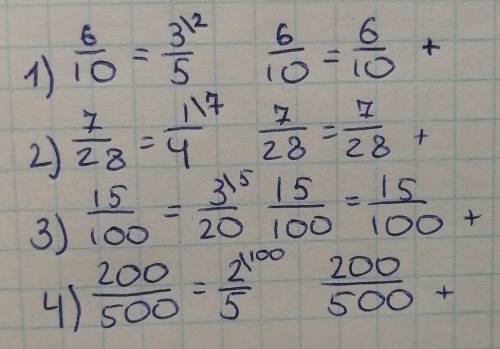 1) 6/10 = 3\2/5 6/10 = 6/10 +
2) 7/28 = 1\7/4 7/28 = 7/28 +
3) 15/100 = 3\5/20 15/100 = 15/100 +
4) 200/500 = 2\100/5 200/500 +